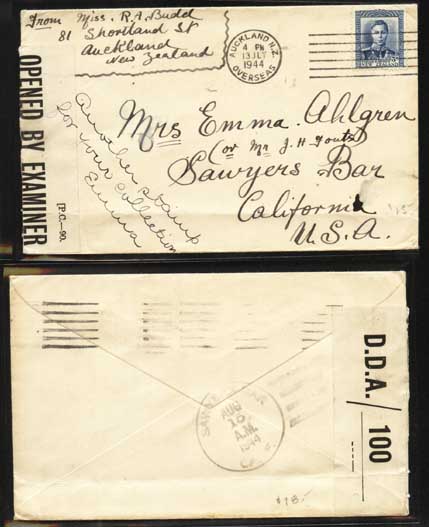 From Miss. R.A. Budd
81 Shortland St
Auckland
New Zealand
AUCKLAND N.Z.
4 PM
13 JLY
1944
OVERSEAS
OPENED BY EXAMINER
[P.C.—90.
Mrs Emma Ahlgren
(or Mr J.H. Foutz)
Sawyers Bar
California
U.S.A.
Another stamp
for your collection
Emma
$15-
D.D.A./100
AUG
10
A.M.
1944
$18-